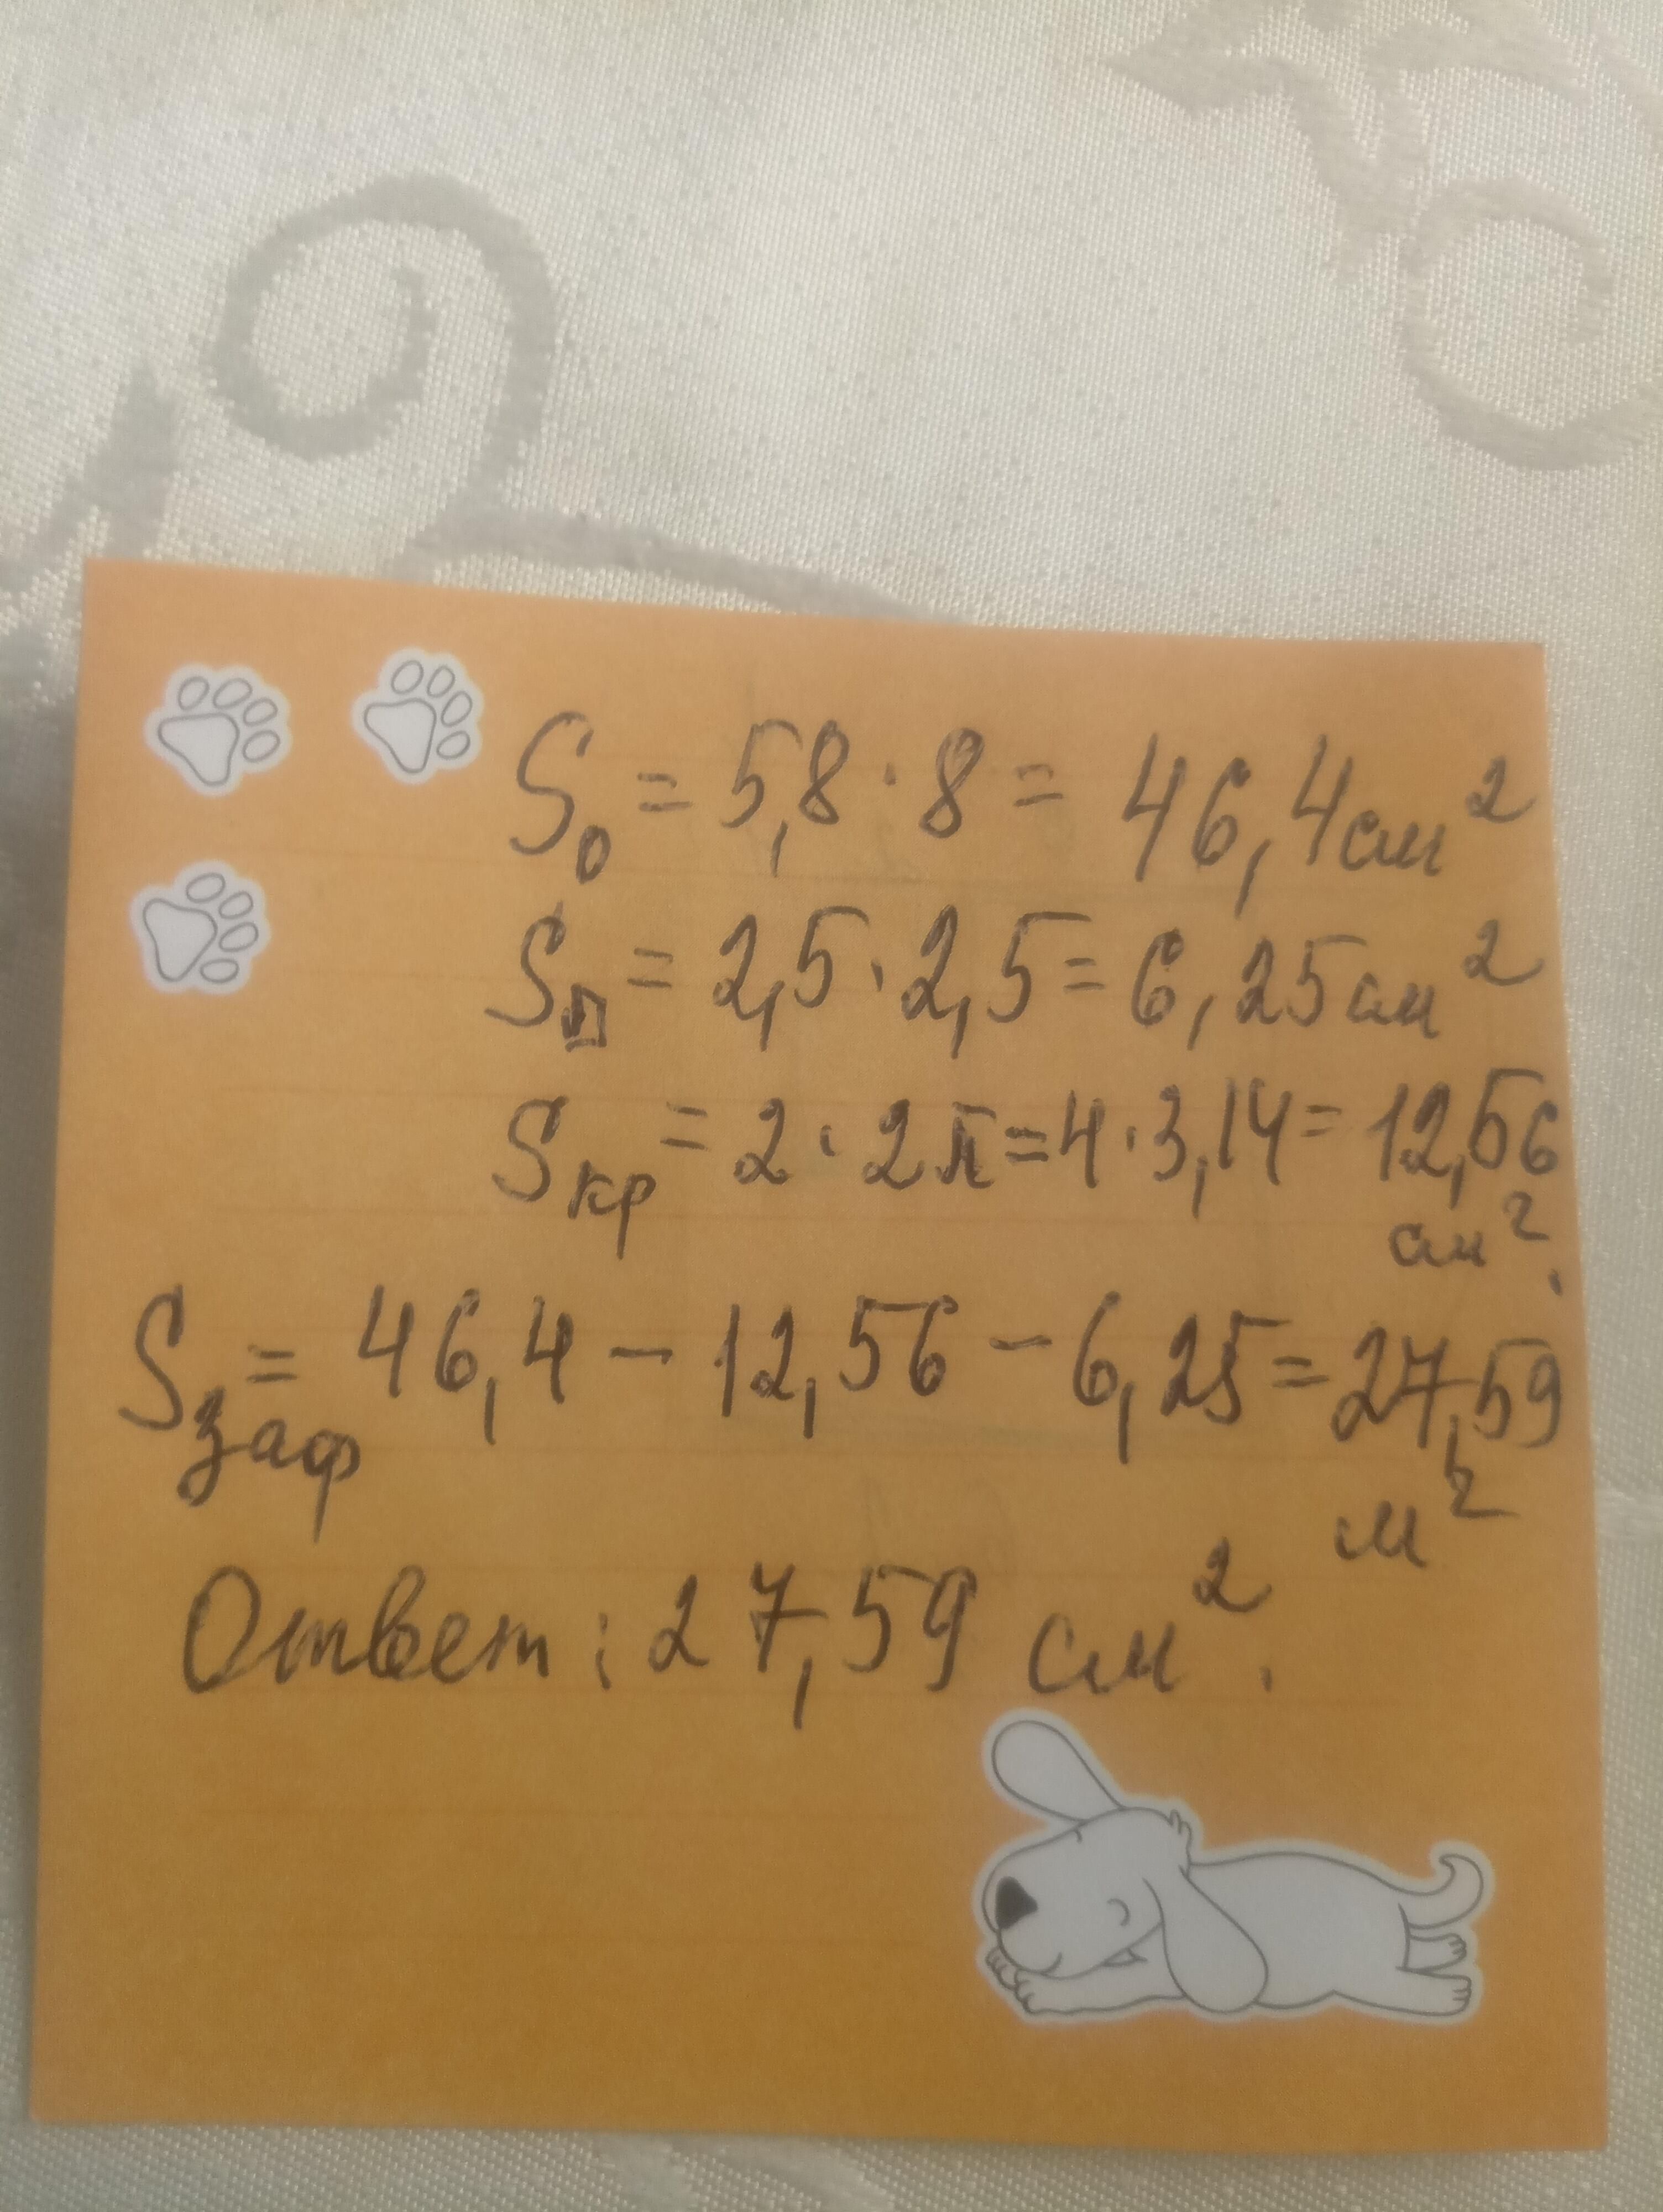 S₀ = 5,8 · 8 = 46,4 см²
S□ = 2,5 · 2,5 = 6,25 см²
Sкр = 2 · 2π = 4 · 3,14 = 12,56
см².
Sзаф = 46,4 - 12,56 - 6,25 = 27,59
м²
Ответ: 27,59 см².